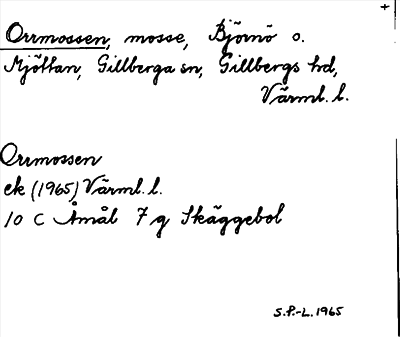 +
Orrmossen, mosse, Björnö o.
Mjöttan, Gillberga sn, Gillbergs hd,
Värml. l.
Orrmossen
ek (1965) Värml. l.
10 C Åmål 7 g Skäggebol
S.P.-L. 1965